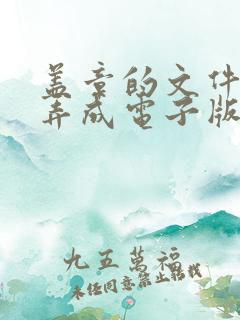 盖章的文件
弄成電子版
九五萬福
未经同意禁止转载